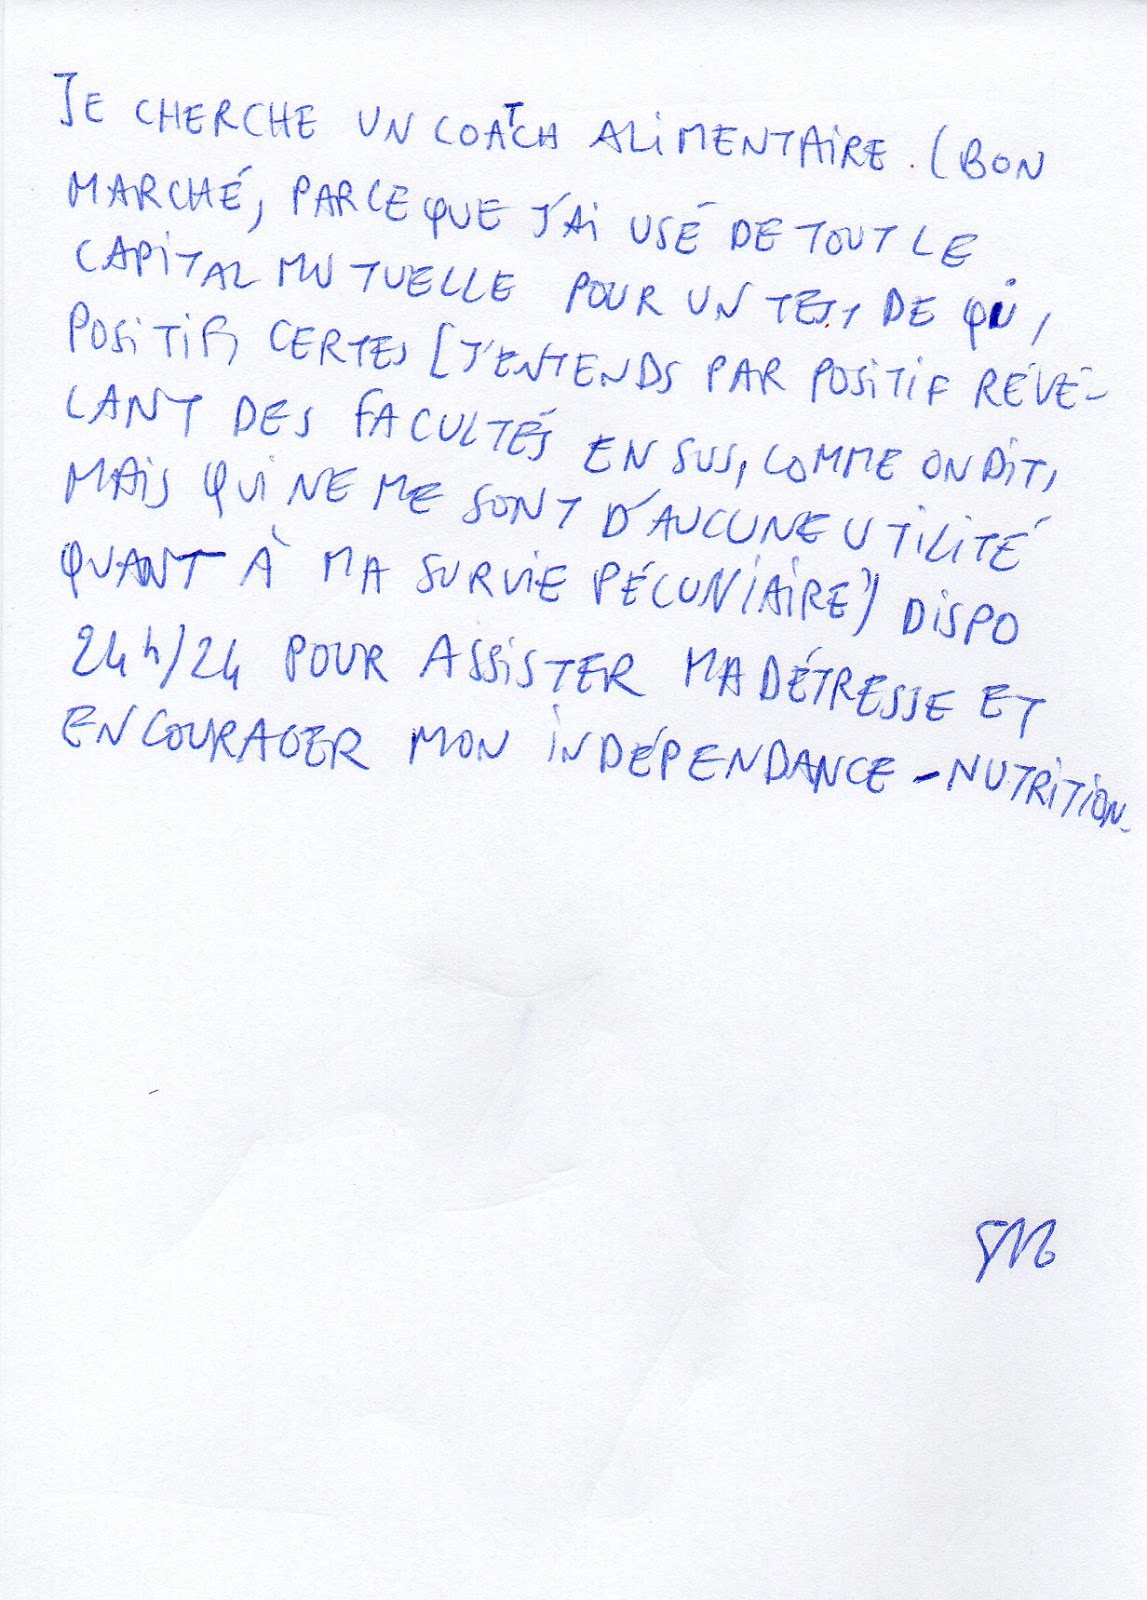 JE CHERCHE UN COATCH ALIMENTAIRE. (BON
MARCHÉ, PARCE QUE J'AI USÉ DE TOUT LE
CAPITAL MUTUELLE POUR UN TEST DE QI,
POSITIF, CERTES [J'ENTENDS PAR POSITIF RÉVÉ-
LANT DES FACULTÉS EN SUS, COMME ON DIT,
MAIS QUI NE ME SONT D'AUCUNE UTILITÉ
QUANT À MA SURVIE PÉCUNIAIRE]) DISPO
24h/24 POUR ASSISTER MA DÉTRESSE ET
ENCOURAGER MON INDÉPENDANCE-NUTRITION.